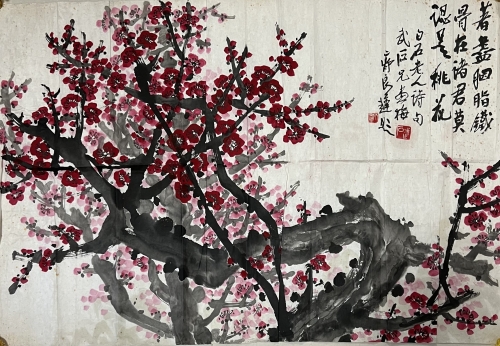 著盡胭脂鐵
骨在諸君莫
認是桃花
白石老人詩句
武臣兄畫梅
良題